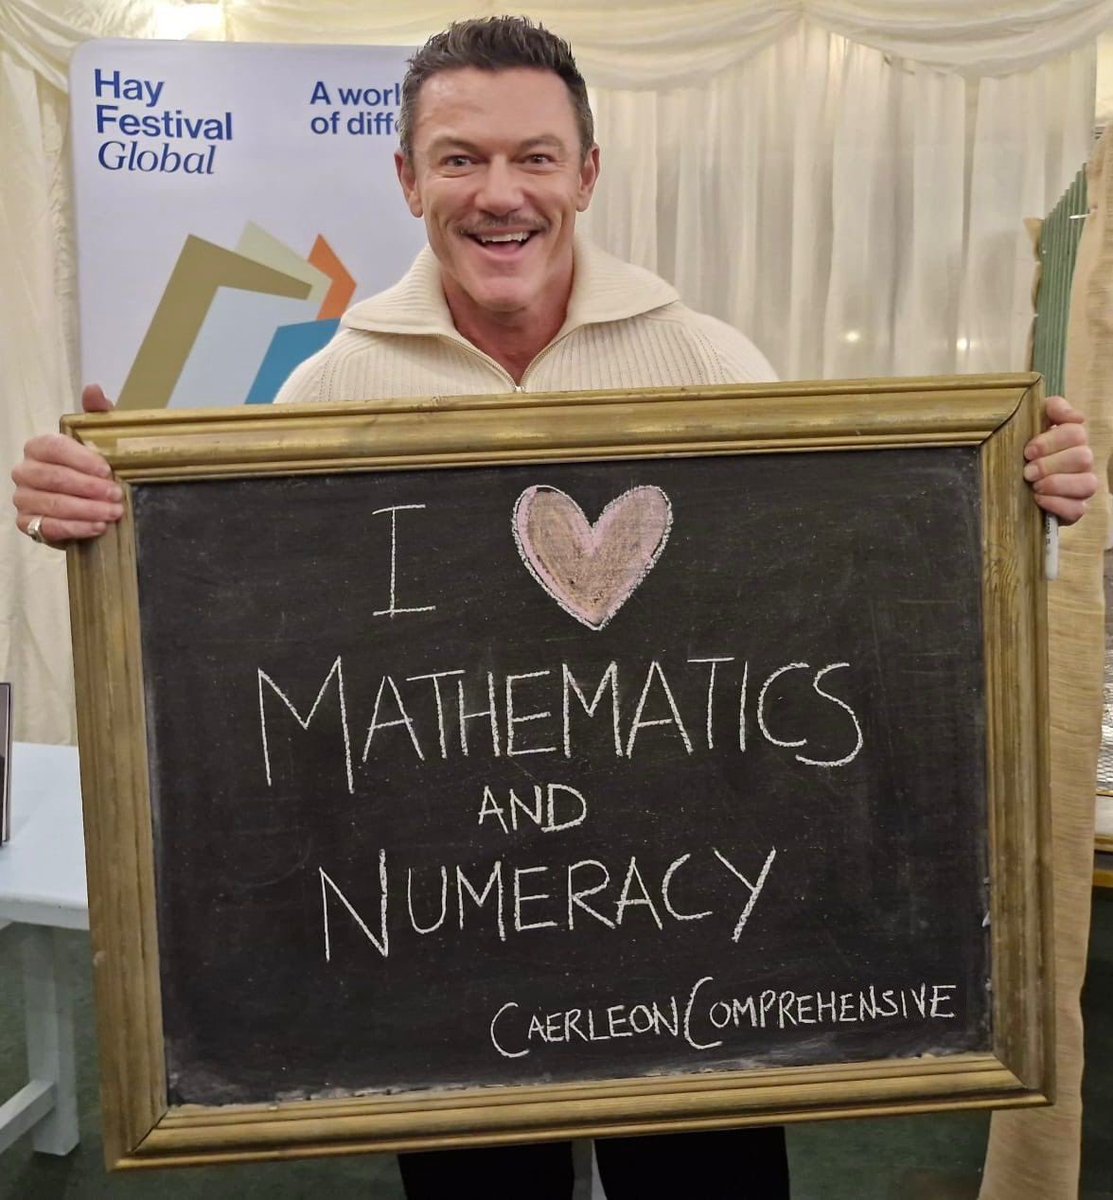 Hay
Festival
Global
A worl
of diff
I
MATHEMATICS
AND
NUMERACY
CAERLEON COMPREHENSIVE